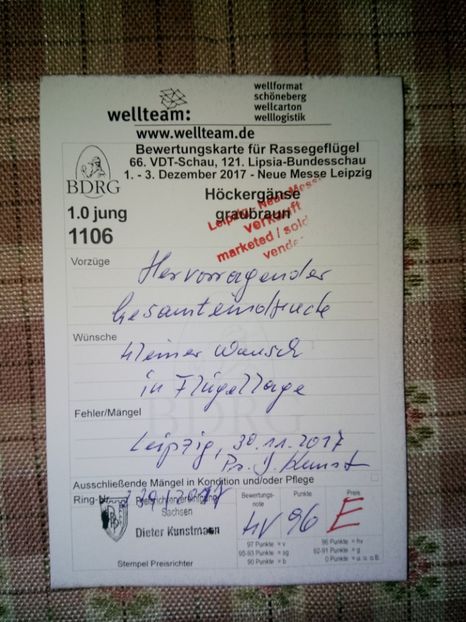 wellteam:
wellformat
schöneberg
wellcarton
welllogistik
www.wellteam.de
Bewertungskarte für Rassegeflügel
66. VDT-Schau, 121. Lipsia-Bundesschau
1. - 3. Dezember 2017 - Neue Messe Leipzig
BDRG
Höckergänse
graubraun
1.0 jung
1106
Leipzig, Neue Messe
verkauft
marketed / sold
Vorzüge
Hervorragender
Gesamteindruck
Wünsche
kleiner Wunsch
in Flügellage
BDRG
Fehler/Mängel
Leipzig, 30.11.2017
Ausschließende Mängel in Kondition und/oder Pflege
Ring-Nr.
Sachsen
Dieter Kunstmann
Stempel Preisrichter
Bewertungs-
note
Punkte
Preis
hv 96 E
97 Punkte = v
96 Punkte = hv
95-93 Punkte = sg
92-91 Punkte = g
90 Punkte = b